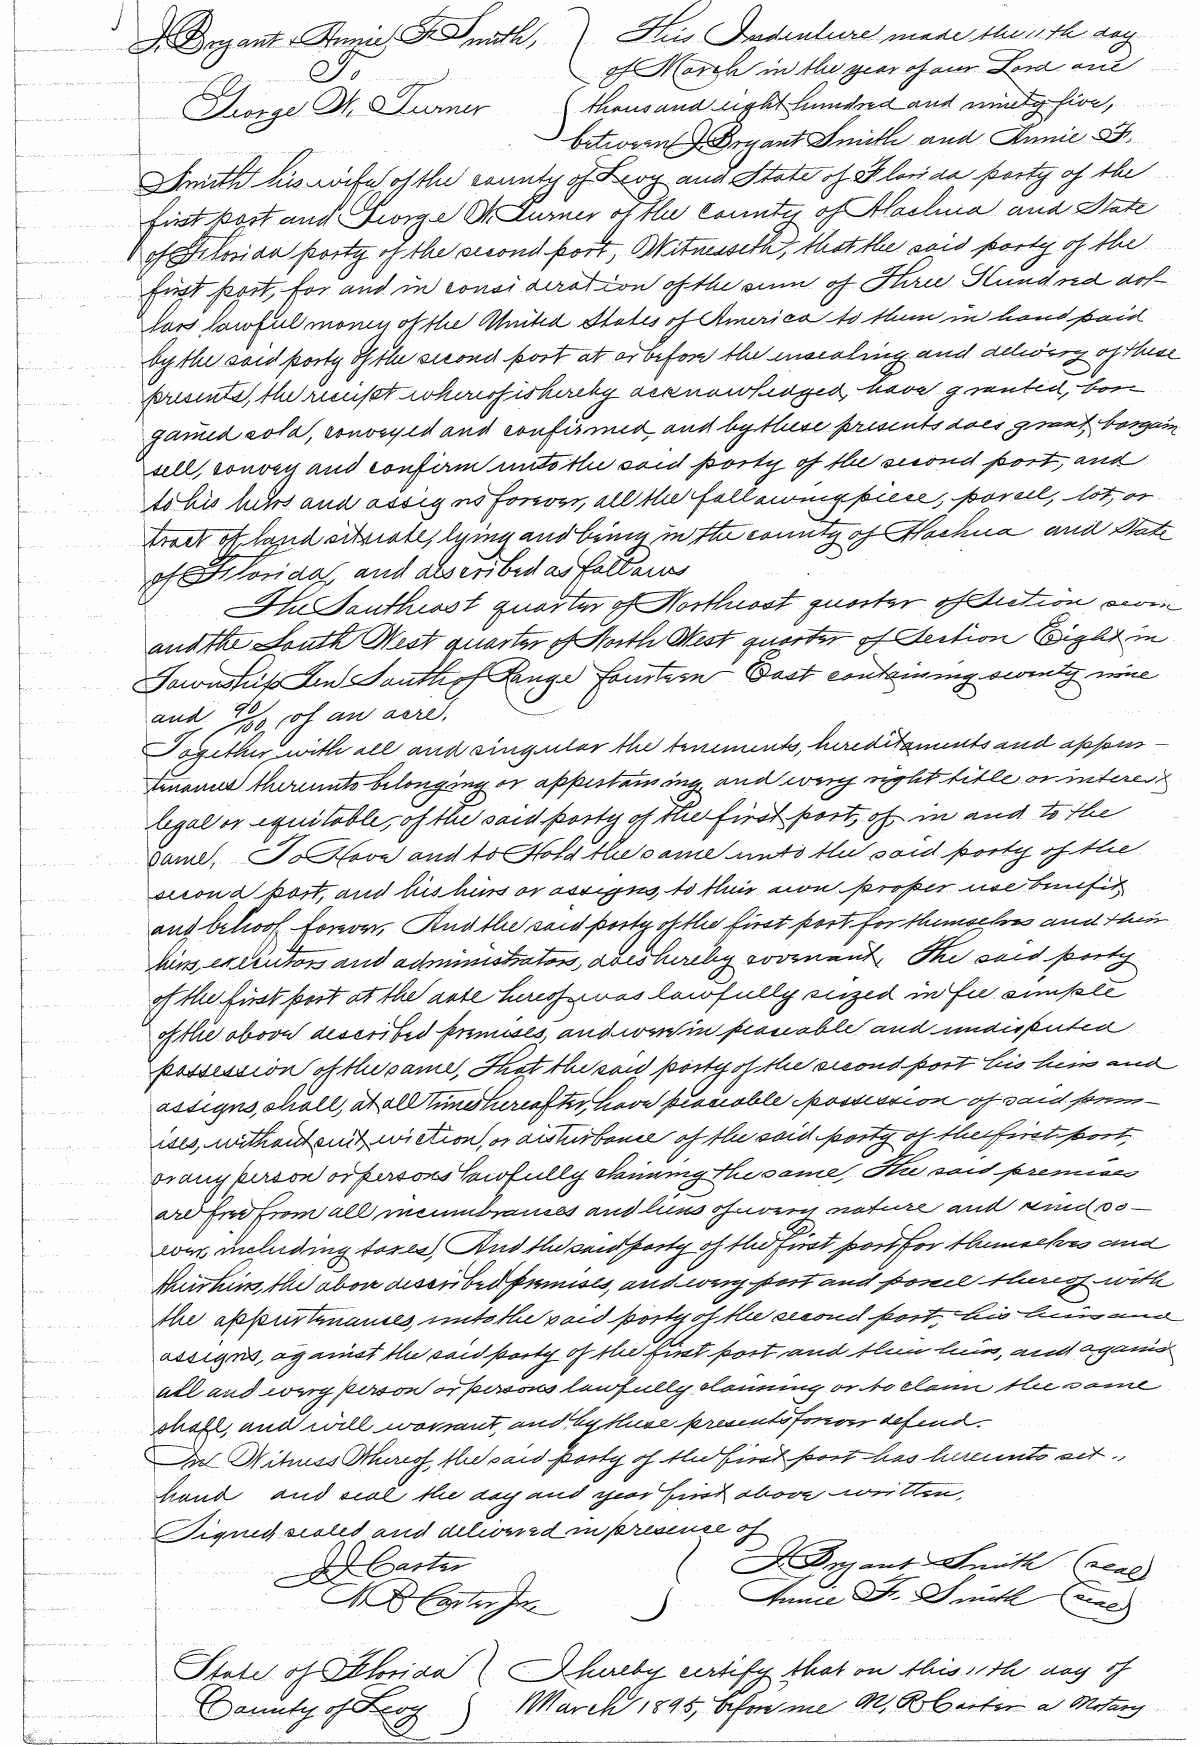 J. Bryant & Annie F. Smith,
To
George W. Turner
This Indenture made the 11th day
of March in the year of our Lord one
thousand eight hundred and ninety five,
between J. Bryant Smith and Annie F.
Smith his wife of the county of Levy and State of Florida party of the
first part and George W. Turner of the County of Alachua and State
of Florida party of the second part, Witnesseth, that the said party of the
first part, for and in consideration of the sum of Three Hundred dol-
lars lawful money of the United States of America to them in hand paid
by the said party of the second part at or before the ensealing and delivery of these
presents, the receipt whereof is hereby acknowledged, have granted, bar
gained sold, conveyed and confirmed, and by these presents does grant, bargain
sell, convey and confirm unto the said party of the second part, and
to his heirs and assigns forever, all the following piece, parcel, lot, or
tract of land situate, lying and being in the county of Alachua and State
of Florida, and described as follows
The Southeast quarter of Northeast quarter of Section seven
and the South West quarter of North West quarter of Section Eight in
Township Ten South of Range fourteen East containing seventy nine
and 90/100 of an acre.
Together with all and singular the tenements, hereditaments and appur-
tenances thereunto belonging or appertaining, and every right title or interest
legal or equitable, of the said party of the first part, of in and to the
same. To Have and to Hold the same unto the said party of the
second part, and his heirs or assigns, to their own proper use benefit
and behoof forever. And the said party of the first part for themselves and their
heirs, executors and administrators, does hereby covenant. The said party
of the first part at the date hereof was lawfully seized in fee simple
of the above described premises, and were in peaceable and undisputed
possession of the same, That the said party of the second part his heirs and
assigns, shall, at all times hereafter, have peaceable possession of said prem-
ises, without suit, eviction, or disturbance of the said party of the first part,
or any person or persons lawfully claiming the same, The said premises
are free from all incumbrances and liens of every nature and kind so-
ever, including taxes, And the said party of the first part for themselves and
their heirs, the above described premises, and every part and parcel thereof with
the appurtenances, unto the said party of the second part, his heirs and
assigns, against the said party of the first part and their heirs, and against
all and every person or persons lawfully claiming or to claim the same
shall, and will warrant, and by these presents forever defend.
In Witness Whereof, the said party of the first part has hereunto set
hand and seal the day and year first above written.
Signed sealed and delivered in presence of
Carter
Carter Jr.
J. Bryant Smith (seal)
Annie F. Smith (seal)
State of Florida
County of Levy
I hereby certify that on this 11th day of
March 1895, before me Carter a Notary